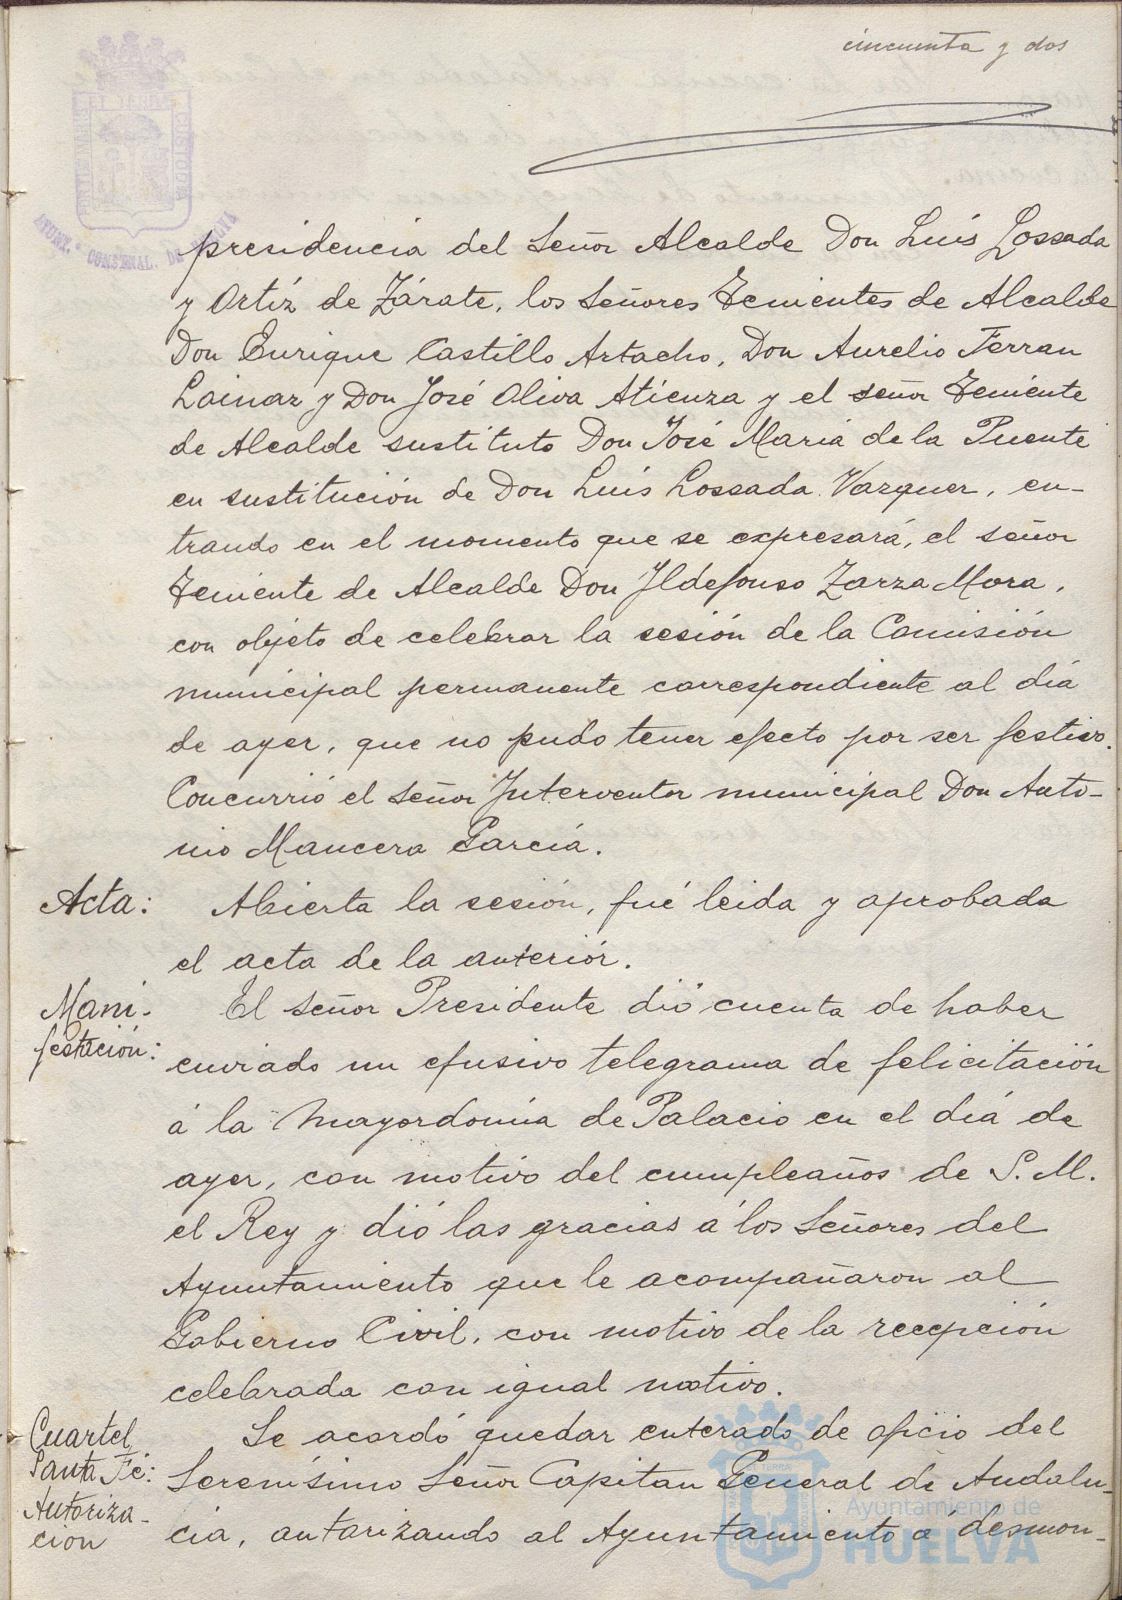 cincuenta y dos
presidencia del Señor Alcalde Don Luis Lossada
y Ortíz de Zárate, los Señores Tenientes de Alcalde
Don Enrique Castillo Artacho, Don Aurelio Ferran
Loinaz y Don José Oliva Atienza y el señor Teniente
de Alcalde sustituto Don José Maria de la Puente
en sustitución de Don Luis Lossada Vazquez, en-
trando en el momento que se expresará, el señor
Teniente de Alcalde Don Ildefonso Zarza Mora,
con objeto de celebrar la sesión de la Comisión
municipal permanente correspondiente al día
de ayer, que no pudo tener efecto por ser festivo.
Concurrió el Señor Interventor municipal Don Anto-
nio Mancera García.
Acta: Abierta la sesión, fué leida y aprobada
el acta de la anteriór.
Mani-
festación:
El Señor Presidente dió cuenta de haber
enviado un efusivo telegrama de felicitación
á la Mayordomía de Palacio en el día de
ayer, con motivo del cumpleaños de S. M.
el Rey y dió las gracias á los Señores del
Ayuntamiento que le acompañaron al
Gobierno Civil, con motivo de la recepción
celebrada con igual motivo.
Cuartel
Santa Fé:
Autoriza-
cion
Se acordó quedar enterado de oficio del
Serenísimo Señor Capitan General de Andalu-
cia, autorizando al Ayuntamiento á desmon-
Ayuntamiento de
HUELVA